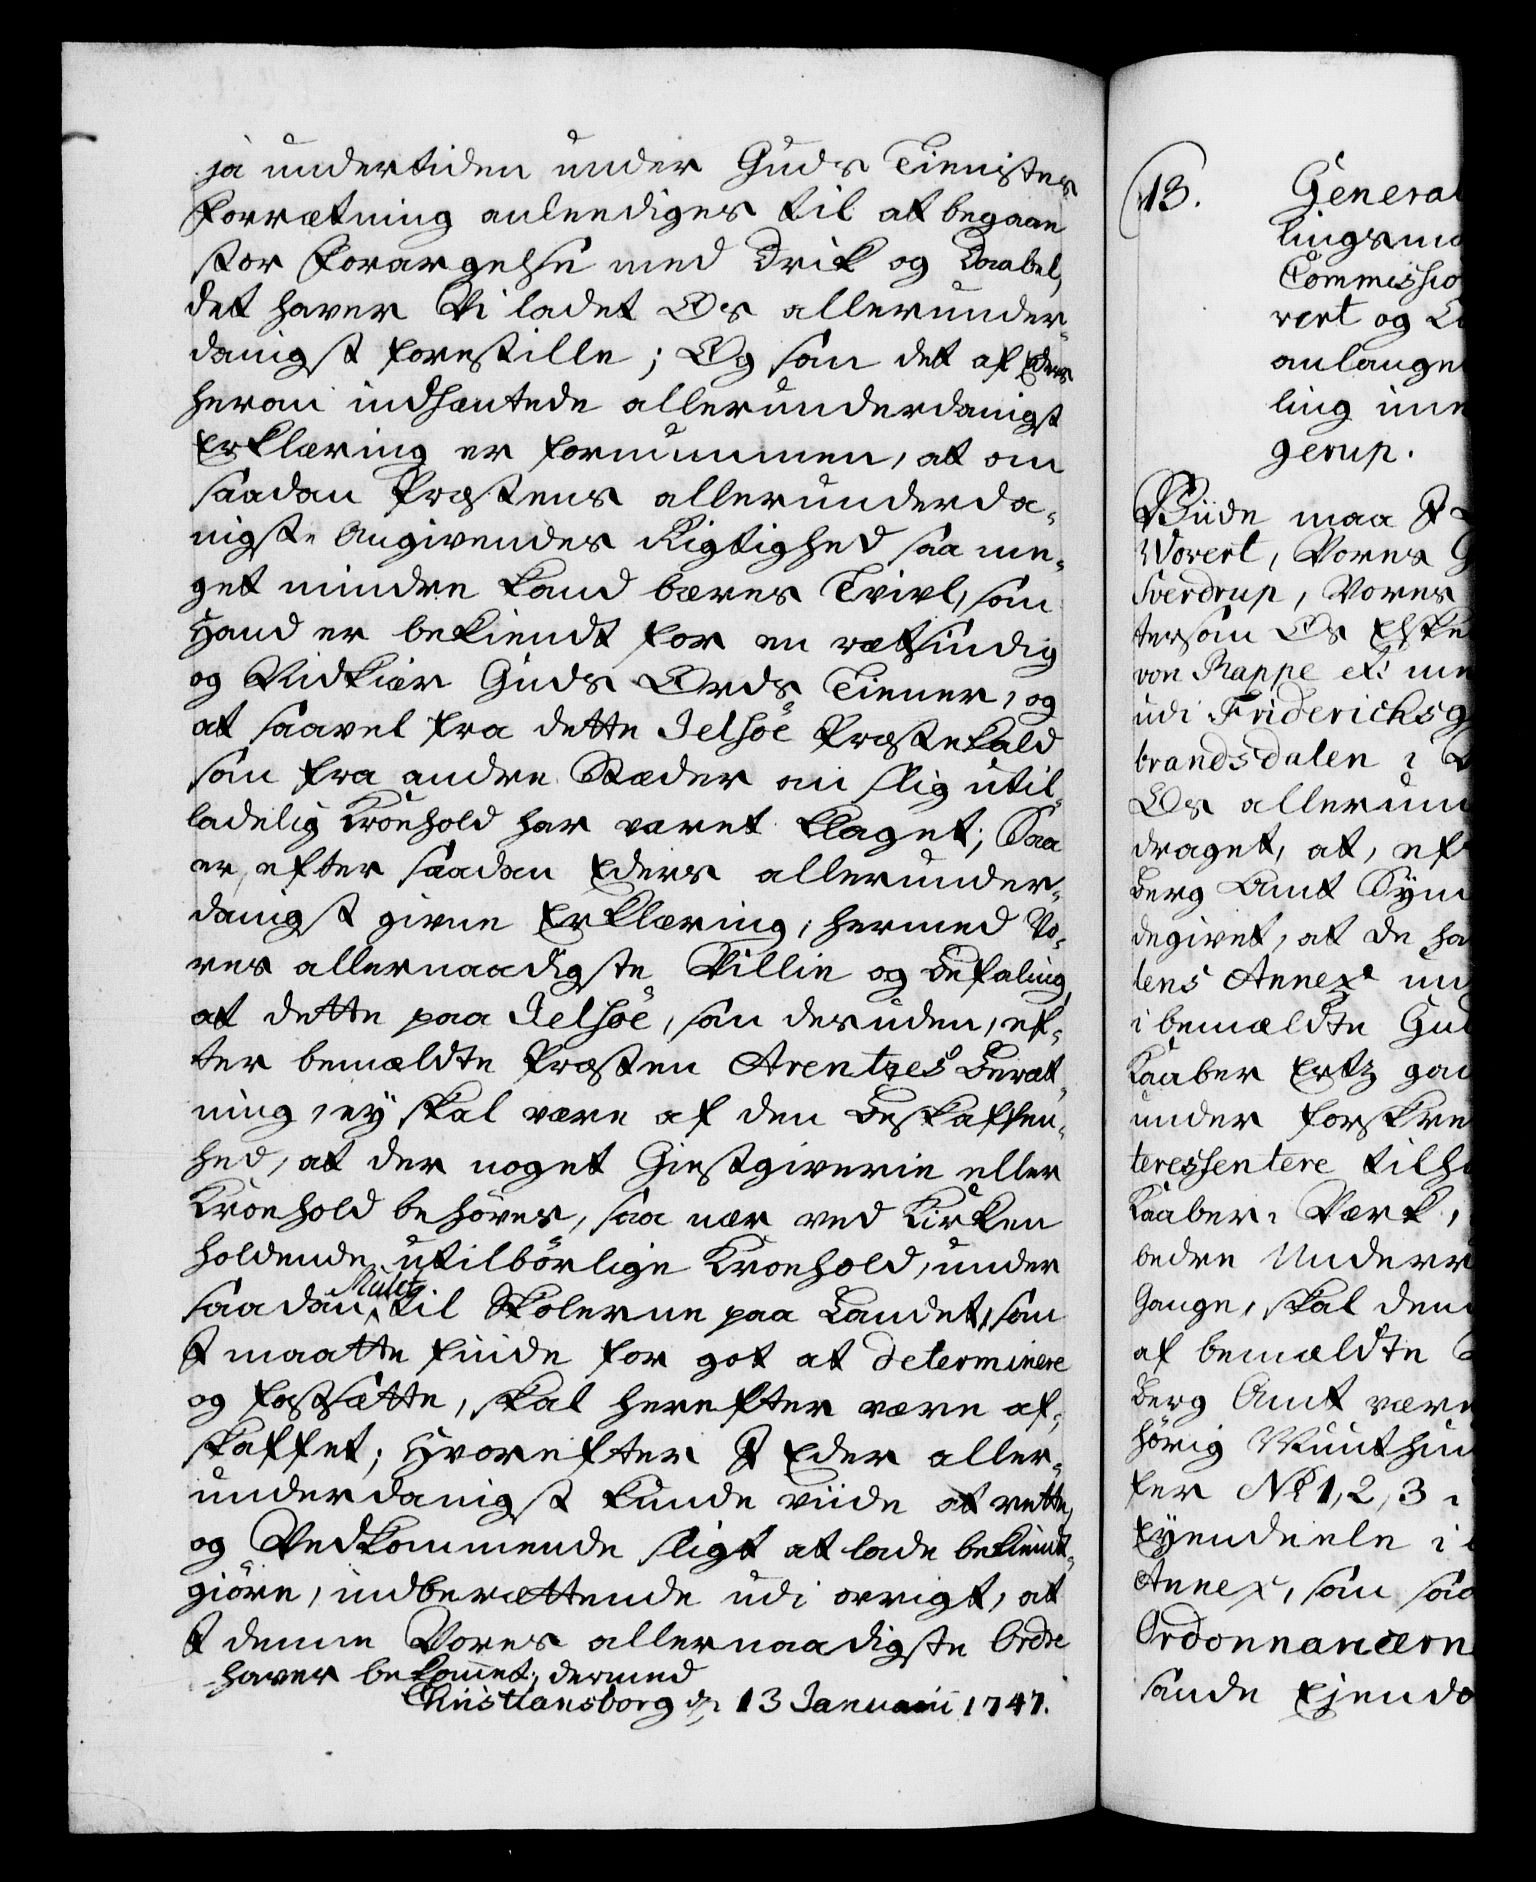 ja undertiden under Guds Tienistes
Forrætning anleediges til at begaae
stor Forargelse med Drik og Daabel,
det haver Vi ladet Os allerunder-
danigst forestille; Og som det af Eders
herom indhæntede allerunderdanigst
Erklæring er fornummen, at om
saadan Præstens allerunderda-
nigste Angivendes Rigtighed saa me-
get mindre kand bæres Tvivl, som
Hand er bekiendt for en rætsindig
og Nidkiær Guds Ords Tiener, og
at saavel fra dette Jelsøe Præstekald
som fra andre Stæder om slig util-
ladelig Kroehold har været klaget; Saa
er, efter saadan Eders allerunder-
danigst givne Erklæring, hermed Vo-
res allernaadigste Villie og Befaling,
at dette paa Jelsøe, som desuden, ef-
ter bemældte Præsten Arentzes Beræt-
ning, ey skal være af den Beskaffen-
hed, at der noget Giestgiverie eller
Kroehold behøves, saa nær ved Kirken
holdende utilbørlige Kroehold, under
saadan Mulct til Skolerne paa Landet, som
I maatte finde for got at determinere
og fastsætte, skal herefter være af-
skaffet; Hvorefter I Eder aller-
underdanigst kunde viide at rette,
og Vedkommende sligt at lade bekiendt-
giøre, indberættende udi øvrigt, at
I denne Vores allernaadigste Ordre
haver bekommet, dermed
Christiansborg d. 13 Januarii 1747.
13. General
lingsma
Commissio
vert og La
anlange
ling im
gerup.
Viide maa I
Wovert, Vores G
Sverdrup, Vores
tersom Os Elske
von Rappe etc. me
udi Friderichsg
brandsdalen i
Os allerun
draget, at, ef
berg Amt Syn
degivet, at de ha
lens Annex un
i bemældte Gul
Kaaber Ertz ga
under forskre
teressentere tilh
Kaaber-Værk,
bedre Underr
Gange, skal den
af bemældte
berg Amt være
hørig Muuthun
fer No 1, 2, 3
Eyendeele i
Annex, som saa
Ordonnancern
sande Ejendo